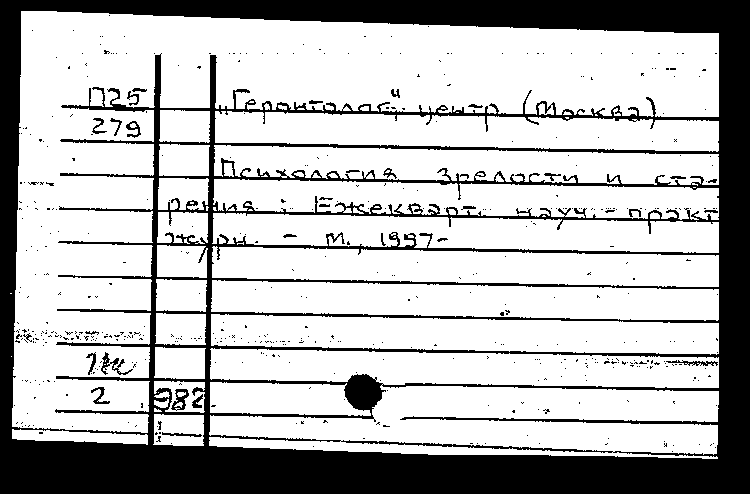 П25 „Геронтолог" центр (Москва)
279
Психология зрелости и ста-
рения : Ежекварт. науч.-практ
журн. - М., 1997-
2 982